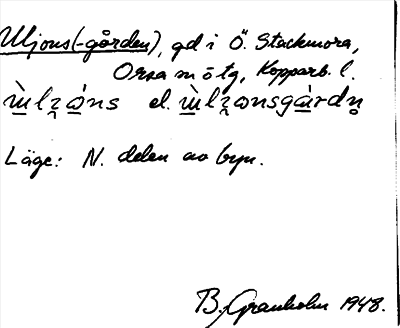 Uljons(-gården), gd i Ö. Stackmora,
Orsa sn ö tg, Kopparb. l.
ɯ̀lʒɷ́ns el. ɯ̀lʒɷnsgàrdn̥
Läge: N. delen av byn.
B. Granholm 1948.